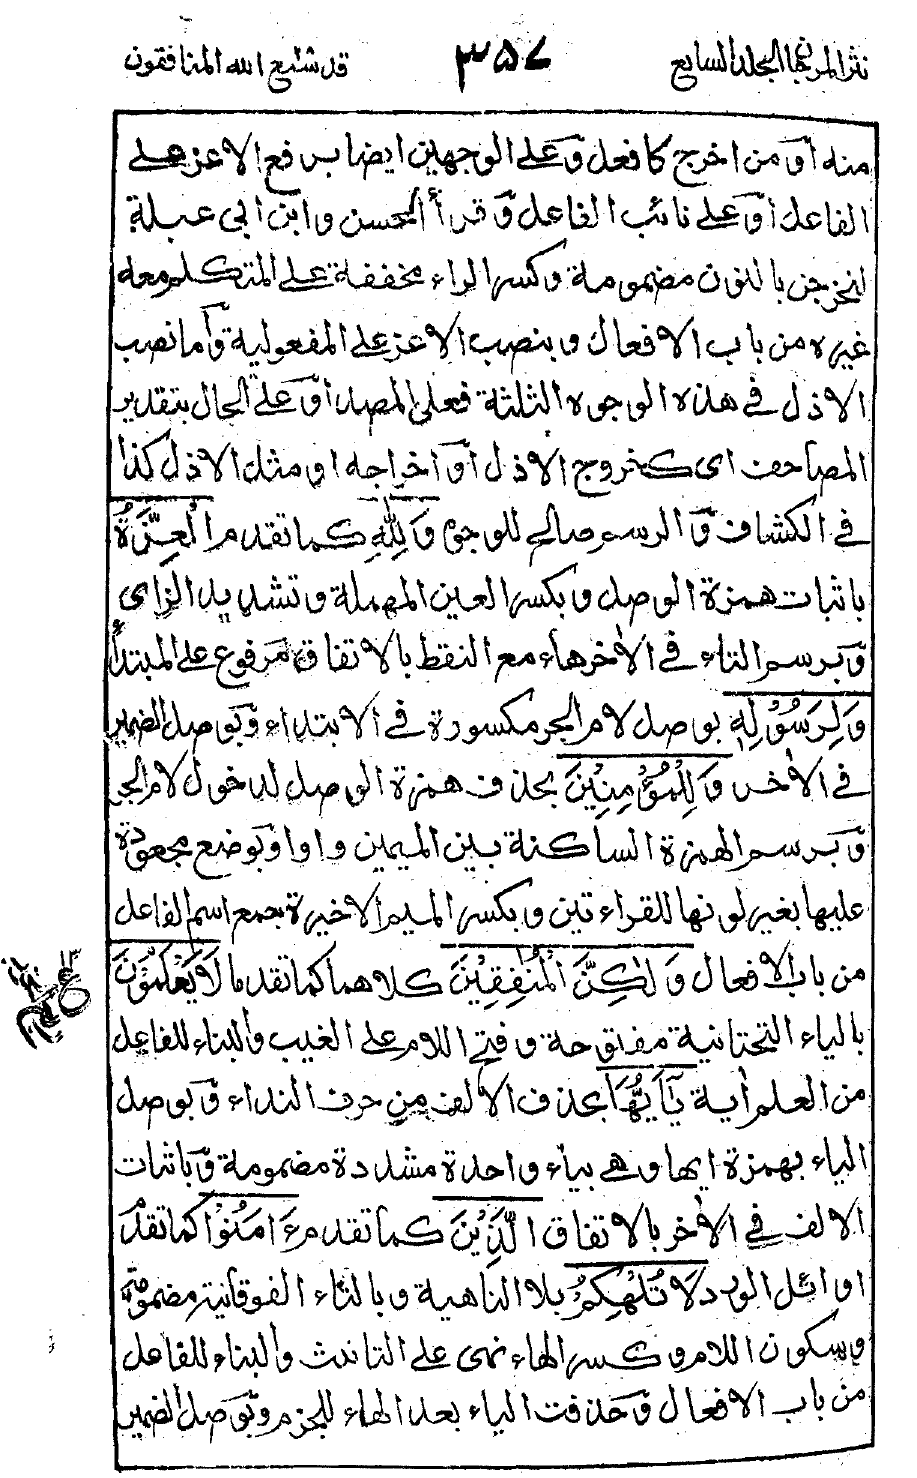 نثر المرجان المجلد السابع ٣٥٧ قد سمع الله المنافقون
منه أو من اخرج كافعل وعلى الوجهين ايضا برفع الاعز على
الفاعل او على نائب الفاعل وقرأ الحسن وابن ابي عبلة
لنخرجن بالنون مضمومة وكسر الراء مخففة على المتكلم معه
غيره من باب الافعال وبنصب الاعز على المفعولية وأما نصب
الاذل في هذه الوجوه الثلثة فعلى المصدر او على الحال بتقدير
المضاف اى كخروج الاذل أو اخراجه او مثل الاذل كذا
في الكشاف والرسم صالح للوجوه وَلِلّٰهِ كما تقدم الْعِزَّةُ
باثبات همزة الوصل وبكسر العين المهملة وتشديد الزاى
وبرسم التاء في الأخر هاء مع النقط بالاتفاق مرفوع على المبتدأ
وَلِرَسُوْلِهٖ بوصل لام الجر مكسورة في الابتداء وبوصل الضمير
في الأخر وَلِلْمُؤْمِنِيْنَ بحذف همزة الوصل لدخول لام الجر
وبرسم الهمزة الساكنة بين الميمين واوا وبوضع مجعودة
عليها بغير لونها للقراءتين وبكسر الميم الاخيرة جمع اسم الفاعل
من باب الافعال وَلٰكِنَّ الْمُنٰفِقِيْنَ كلاهما كما تقدما لَا يَعْلَمُوْنَ
بالياء التحتانية مفتوحة وفتح اللام على الغيب والبناء للفاعل
من العلم أية يٰٓاَيُّهَا بحذف الألف من حرف النداء وبوصل
الياء بهمزة ايها وهي بياء واحدة مشددة مضمومة وباثبات
الالف في الأخر بالاتفاق الَّذِيْنَ كما تقدم ءَامَنُوْا كما تقدم
اوائل الورد لَا تُلْهِكُمْ بلا الناهية وبالتاء الفوقانية مضمومة
وسكون اللام وكسر الهاء نهى على التانيث والبناء للفاعل
من باب الافعال وحذفت الياء بعد الهاء للجزم وبوصل الضمير